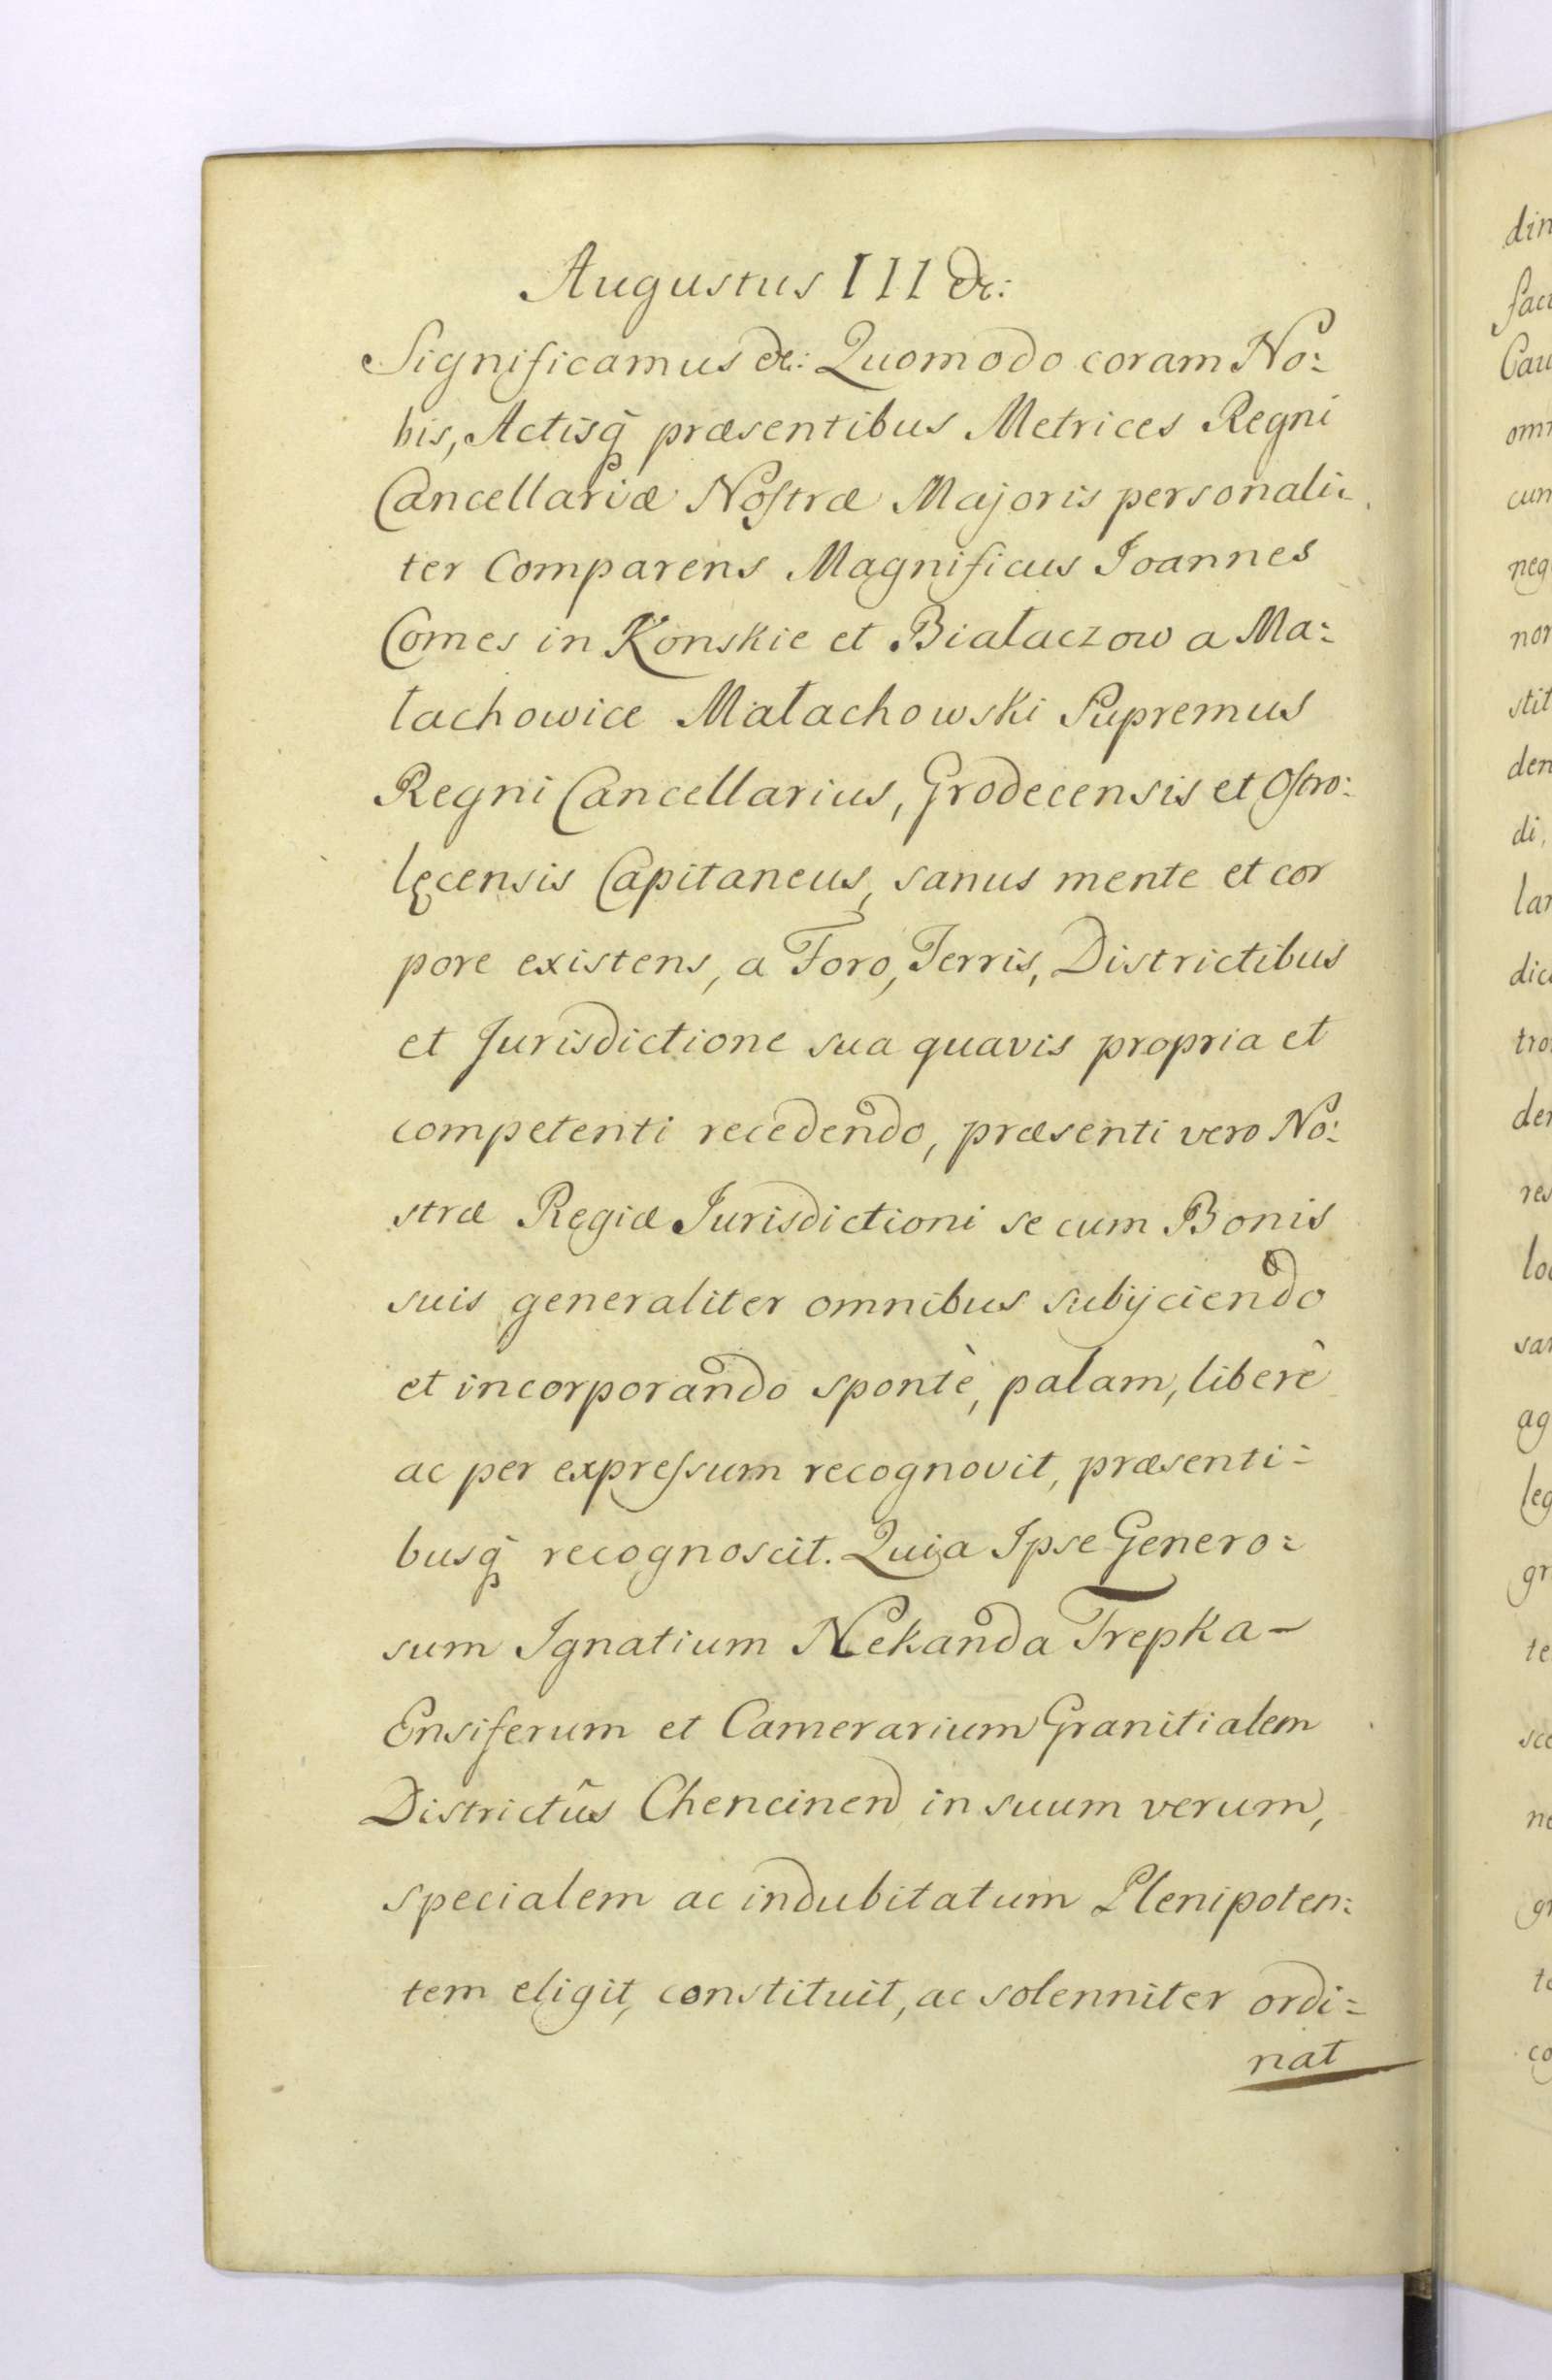 Augustus III &c:
Significamus &c: Quomodo coram No:
bis, Actisq̃ præsentibus Metrices Regni
Cancellariæ Nostræ Majoris personali:
ter Comparens Magnificus Joannes
Comes in Konskie et Białaczow a Ma:
łachowice Małachowski Supremus
Regni Cancellarius, Grodecensis et Ostro:
lęcensis Capitaneus, sanus mente et cor
pore existens, a Foro, Terris, Districtibus
et Jurisdictione sua quavis propria et
competenti recedendo, præsenti vero No:
stræ Regiæ Jurisdictioni se cum Bonis
suis generaliter omnibus subijciendo
et incorporando spontè, palam, liberè
ac per expressum recognovit, præsenti=
busq̃ recognoscit. Quia Ipse Genero:
sum Ignatium Nekanda Trepka -
Ensiferum et Camerarium Granitialem
Districtûs Chencinen in suum verum,
specialem ac indubitatum Plenipoten:
tem eligit, constituit, ac solenniter ordi=
nat
din
fact
cun
neg
nor
stit
den
di,
lar
dic
tro
der
res
loc
sar
ag
leg
gr
te
sce
ne
gr
te
co